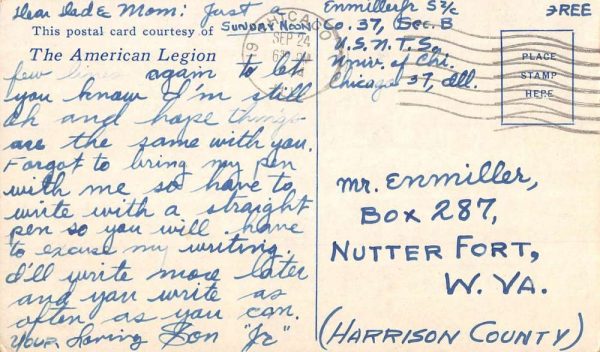 Dear Dad & Mom: Just a
This postal card courtesy of
SUNDAY NOON
The American Legion
few lines again to let
you know I'm still
Ok and hope things
are the same with you.
Forgot to bring my pen
with me so have to
write with a straight
pen so you will have
to excuse my writing.
I'll write more later
and you write as
often as you can.
Your Loving Son "Jr"
CHICAGO
SEP 24
19
Enmiller Jr S 2/c
Co. 37, Sec. B
U.S.N.T.S.
Univ. of Chi.
Chicago 37, Ill.
FREE
PLACE
STAMP
HERE
Mr. Enmiller,
Box 287,
NUTTER FORT,
W. VA.
(HARRISON COUNTY)